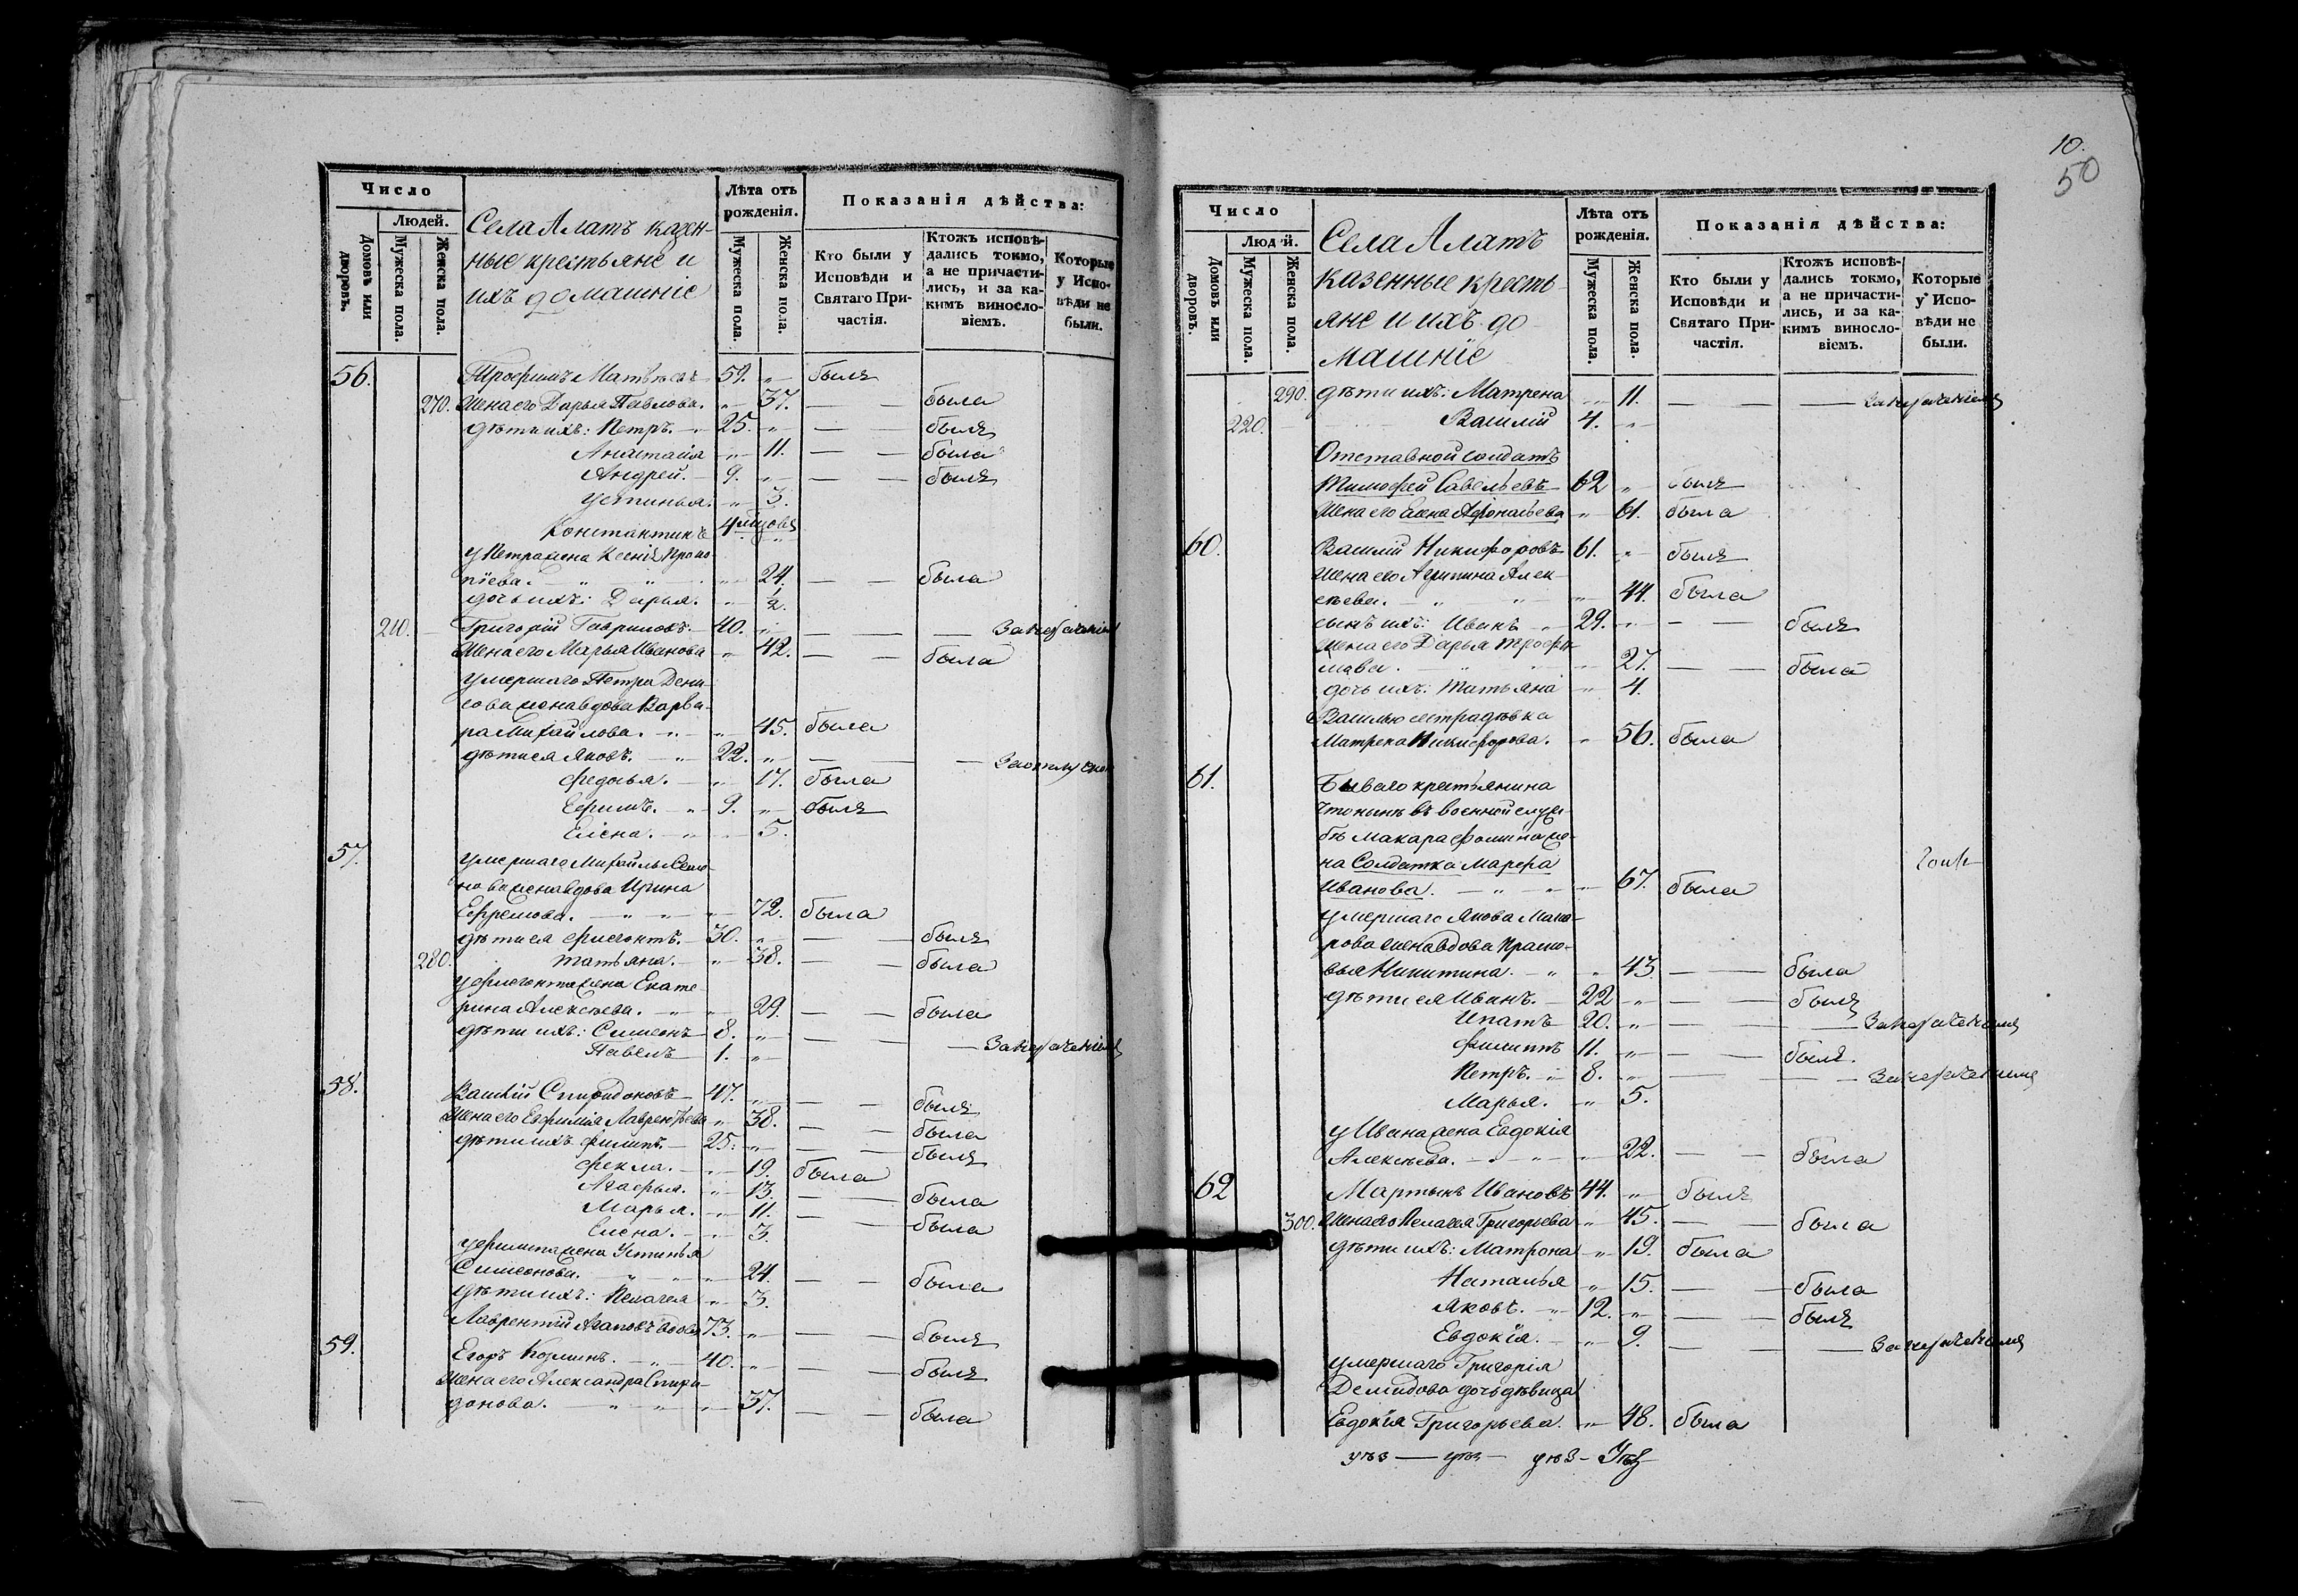 Число
Людей.
Домовъ или дворовъ.
Мужеска пола.
Женска пола.
Села Алатъ казен-
ные крестьяне и
ихъ домашніе
Лѣта отъ рожденія.
Мужеска пола.
Женска пола.
Показанія дѣйства:
Кто были у Исповѣди и Святаго При-частія.
Ктожъ исповѣ-дались токмо, а не причасти-лись, и за ка-кимъ винословіемъ.
Которые у Испо-вѣди не были.
56. Трофимъ Матвѣевъ 59. „ былъ
270. Жена его Дарья Павлова. „ 37. — — была
дѣти ихъ: Петръ. 25. „ — — былъ
Анастасія „ 11. — — была
Андрей. 9. „ — — былъ
Устинья. „ 3.
Константинъ 4 мѣсяцовъ
у Петра жена Ксенія Проко-
піева. „ 24. — — была
дочь ихъ: Дарья. „ 1/2.
210. Григорій Гавриловъ. 40. „ — —
Жена его Марья Иванова „ 42. — — была
умершаго Петра Дени-
сова жена вдова Варва-
ра Михайлова. „ 45. была
дѣти ея Яковъ. 22. „ — —
Федосья. „ 17. была
Ефимъ. 9. „ былъ
Елена. „ 5.
57. умершаго Михайлы Семе-
нова жена вдова Ирина
Ефремова. „ 72. была
дѣти ея Флегонтъ. 30. „ — — былъ
280. Татьяна. „ 38. — — была
у Флегонта жена Екате-
рина Алексѣева. „ 29. — — была
дѣти ихъ: Симеонъ 8. „ — —
Павелъ 1. „
58. Василій Спиридоновъ 47. „ — — былъ
Жена его Евфимія Лаврентьева „ 38. — — была
дѣти ихъ Филипъ. 25. „ — — былъ
Фекла. „ 19. была
Агафья. „ 13. — — была
Марья. „ 11. — — была
Елена. „ 3.
у Филипа жена Устинья
Симеонова. „ 24. — — была
дѣти ихъ: Пелагея „ 3.
Лаврентій Агаповъ вдовъ 73. „ — — былъ
59. Егоръ Козминъ. 40. „ — — былъ
Жена его Александра Спири-
донова. „ 37. — — была
10.
50
Число
Людей.
Домовъ или дворовъ.
Мужеска пола.
Женска пола.
Села Алатъ
казенные кресть-
яне и ихъ до-
машніе
Лѣта отъ рожденія.
Мужеска пола.
Женска пола.
Показанія дѣйства:
Кто были у Исповѣди и Святаго При-частія.
Ктожъ исповѣ-дались токмо, а не причасти-лись, и за ка-кимъ винословіемъ.
Которые у Испо-вѣди не были.
290. дѣти ихъ: Матрена „ 11. — —
220. Василій 4. „
Отставной солдатъ
Тимофей Савельевъ 62 „ былъ
Жена его Елена Афонасьева „ 61. была
60. Василій Никифоровъ 61. „ былъ
Жена его Агрипина Алек-
сѣева. „ 44. была
сынъ ихъ: Иванъ 29. „ — — былъ
Жена его Дарья Трофи-
мова. „ 27. — — была
дочь ихъ: Татьяна „ 4.
Василью сестра дѣвка
Матрена Никифорова. „ 56. была
61. Бывшаго крестьянина
что нынѣ въ военной служ-
бѣ Макара Фомина же-
на Солдатка Марфа
Иванова. „ 67. была
умершаго Якова Мака-
рова жена вдова Праско-
вья Никитина. „ 43 — — была
дѣти ея Иванъ. 22 „ — — былъ
Ипатъ 20. „ — —
Филиппъ 11. „ — — былъ.
Петръ. 8. „ — —
Марья. „ 5.
у Ивана жена Евдокія
Алексѣева. „ 22. — — была
62 Мартынъ Ивановъ 44. „ былъ
300. Жена его Пелагея Григорьева „ 45. — — была
дѣти ихъ: Матрона „ 19. была
Наталья „ 15. — — была
Яковъ. 12. „ — — былъ
Евдокія. „ 9. — —
умершаго Григорія
Демидова дочь дѣвица
Евдокія Григорьева. „ 48. была